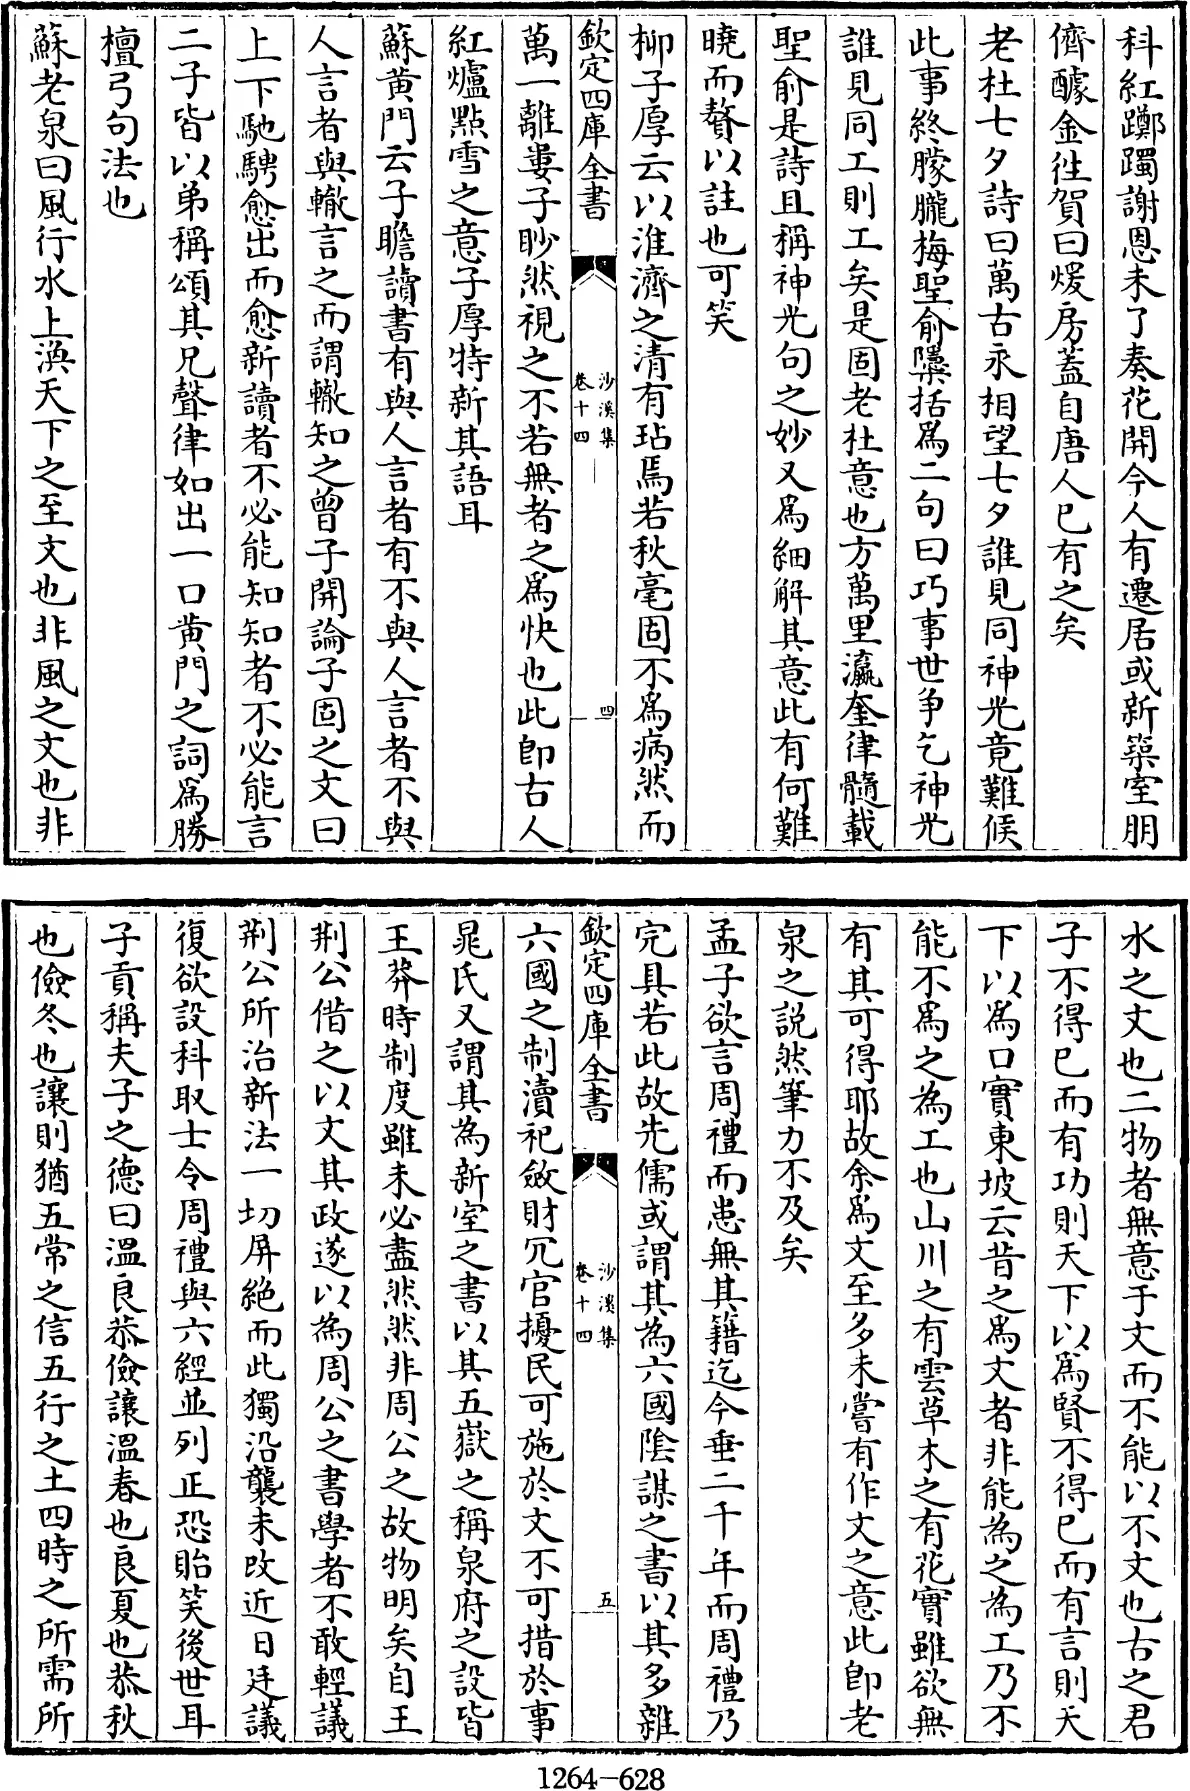 科紅躑躅謝恩未了奏花開今人有遷居或新築室朋
儕醵金徃賀曰煖房蓋自唐人已有之矣
老杜七夕詩曰萬古永相望七夕誰見同神光竟難候
此事終朦朧梅聖俞隱括為二句曰巧事世爭乞神光
誰見同工則工矣是固老杜意也方萬里瀛奎律髓載
聖俞是詩且稱神光句之妙又為細解其意此有何難
曉而贅以註也可笑
柳子厚云以淮濟之清有玷焉若秋毫固不為病然而
欽定四庫全書
沙溪集
卷十四
四
萬一離婁子眇然視之不若無者之為快也此即古人
紅爐點雪之意子厚特新其語耳
蘇黃門云子瞻讀書有與人言者有不與人言者不與
人言者與轍言之而謂轍知之曾子開論子固之文曰
上下馳騁愈出而愈新讀者不必能知知者不必能言
二子皆以弟稱頌其兄聲律如出一口黃門之詞為勝
檀弓句法也
蘇老泉曰風行水上渙天下之至文也非風之文也非
水之文也二物者無意于文而不能以不文也古之君
子不得已而有功則天下以為賢不得已而有言則天
下以為口實東坡云昔之為文者非能為之為工乃不
能不為之為工也山川之有雲草木之有花實雖欲無
有其可得耶故余為文至多未嘗有作文之意此即老
泉之説然筆力不及矣
孟子欲言周禮而患無其籍迄今垂二千年而周禮乃
完具若此故先儒或謂其為六國陰謀之書以其多雜
欽定四庫全書
沙溪集
卷十四
五
六國之制瀆祀斂財冗官擾民可施於文不可措於事
晁氏又謂其為新室之書以其五嶽之稱泉府之設皆
王莽時制度雖未必盡然然非周公之故物明矣自王
荆公借之以文其政遂以為周公之書學者不敢輕議
荆公所治新法一切屏絶而此獨沿襲未改近日廷議
復欲設科取士令周禮與六經並列正恐貽笑後世耳
子貢稱夫子之德曰溫良恭儉讓溫春也良夏也恭秋
也儉冬也讓則猶五常之信五行之土四時之所需所
1264—628